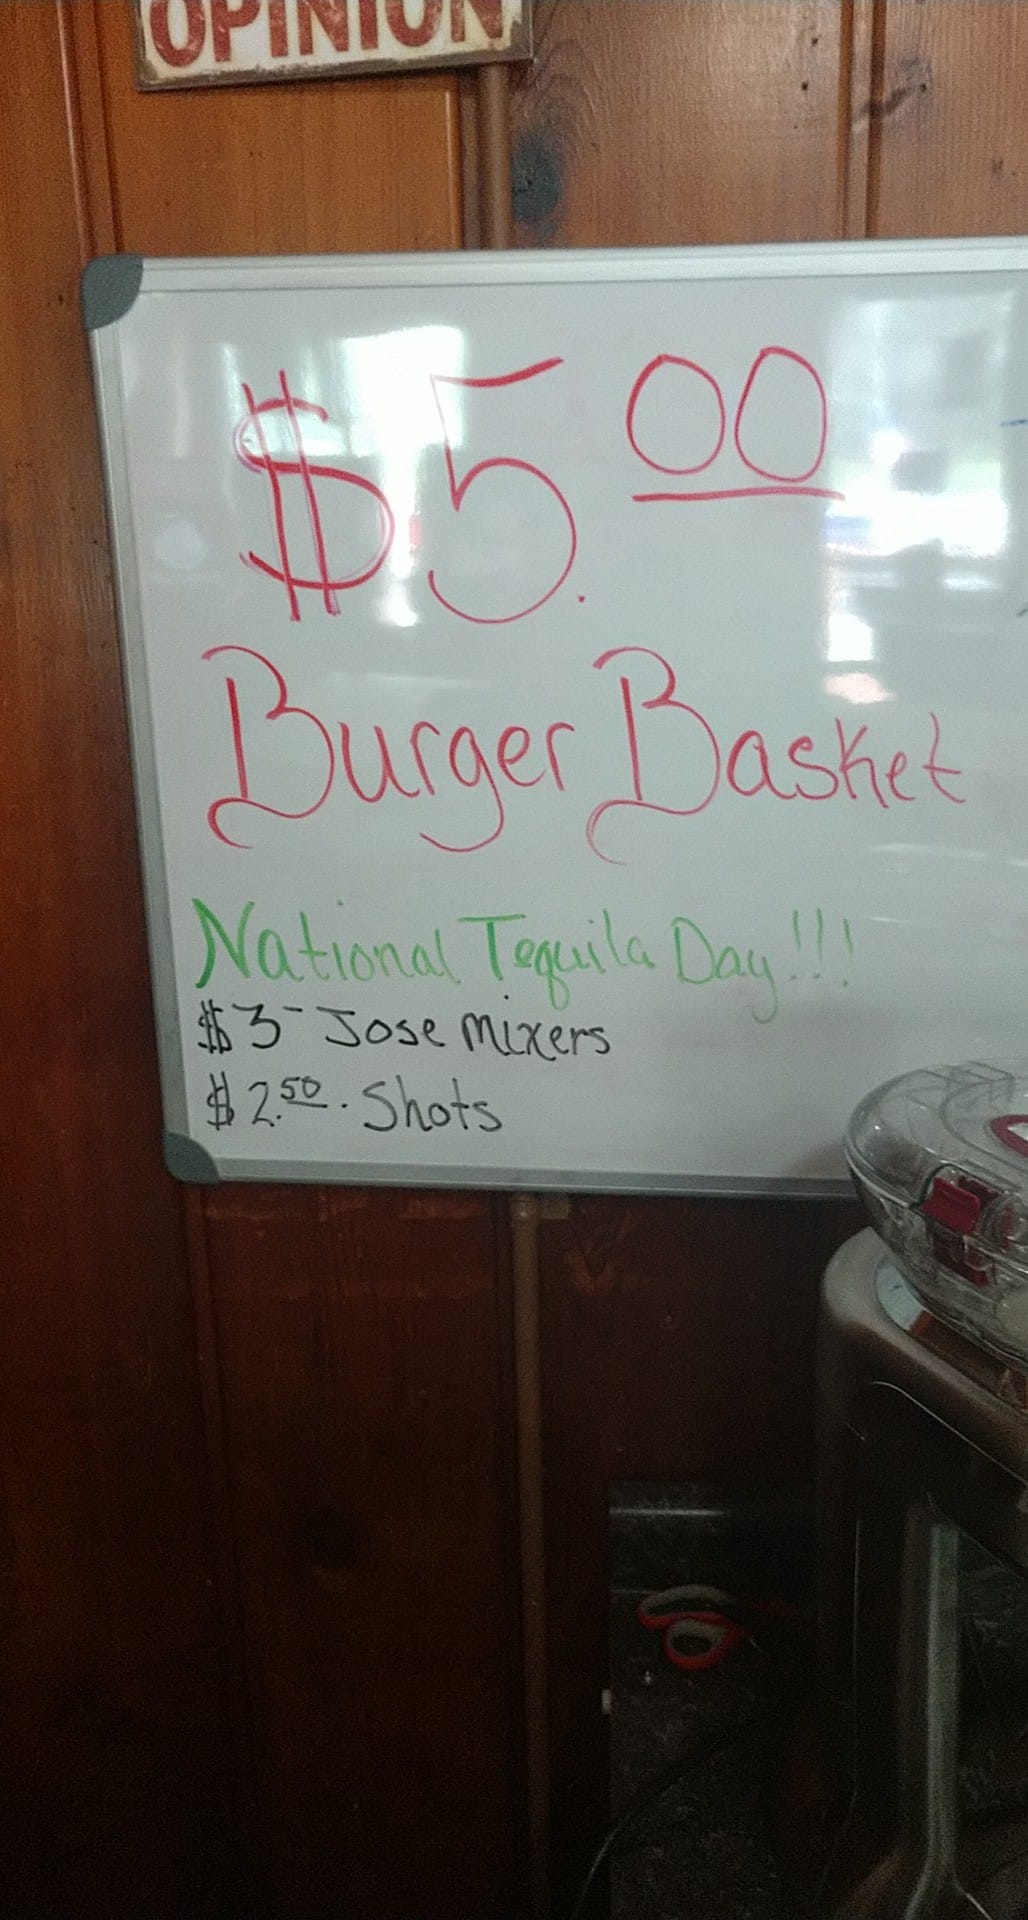 OPINION
$5.00
Burger Basket
National Tequila Day!!!
$3- Jose Mixers
$2.50. Shots